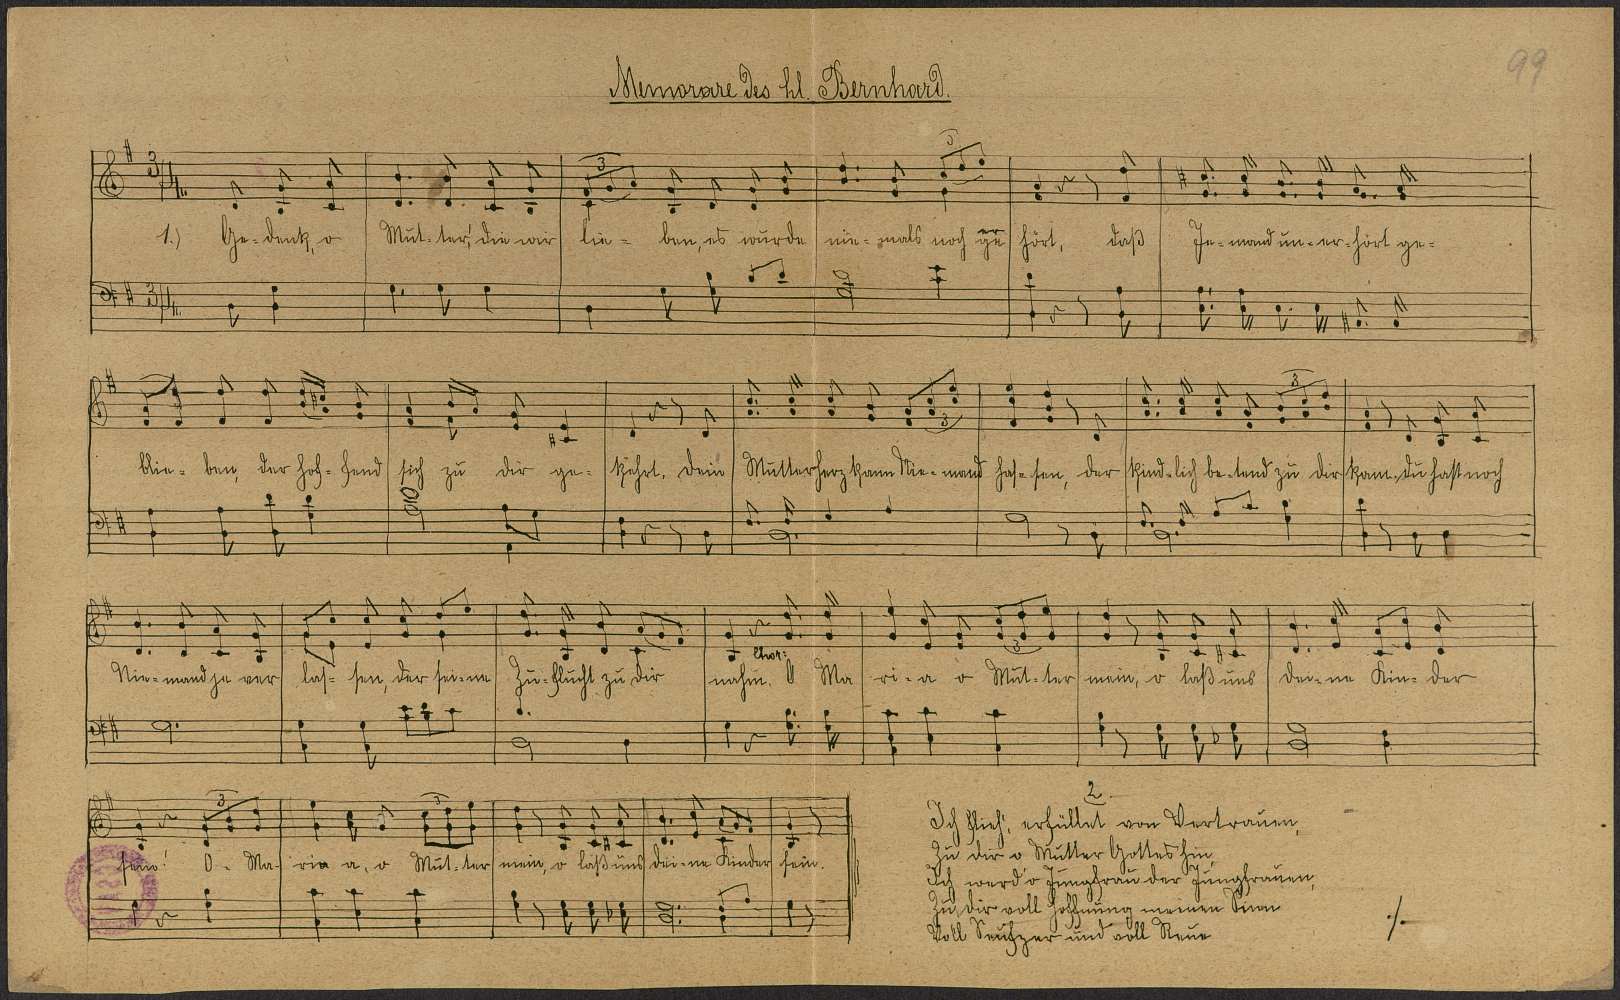 99
Memorare des hl. Bernhard.
1.) Ge-denk, o Mut-ter, die wir lie-ben, es wurde nie-mals noch er hört, daß Je-mand un-er-hört ge-
blie-ben, der hof-fend sich zu dir ge-kehrt. Dein Mutterherz kann Nie-mand has-sen, der kind-lich be-tend zu dir kam. du hast noch
Chor:
Nie-mand je ver las-sen, der sei-ne Zu-flucht zu dir nahm. O Ma ri-a o Mut-ter mein, o laß uns dei-ne Kin-der
sein! O-Ma-ria a, o Mut-ter mein, o laß uns dei-ne Kinder sein.
2.
Ich flieh', erfüllet von Vertrauen,
Zu dir o Mutter Gottes hin,
Ich werd' o Jungfrau der Jungfrauen,
Zu dir voll Hoffnung meinen Sinn
Voll Seufzer und voll Reue
./.